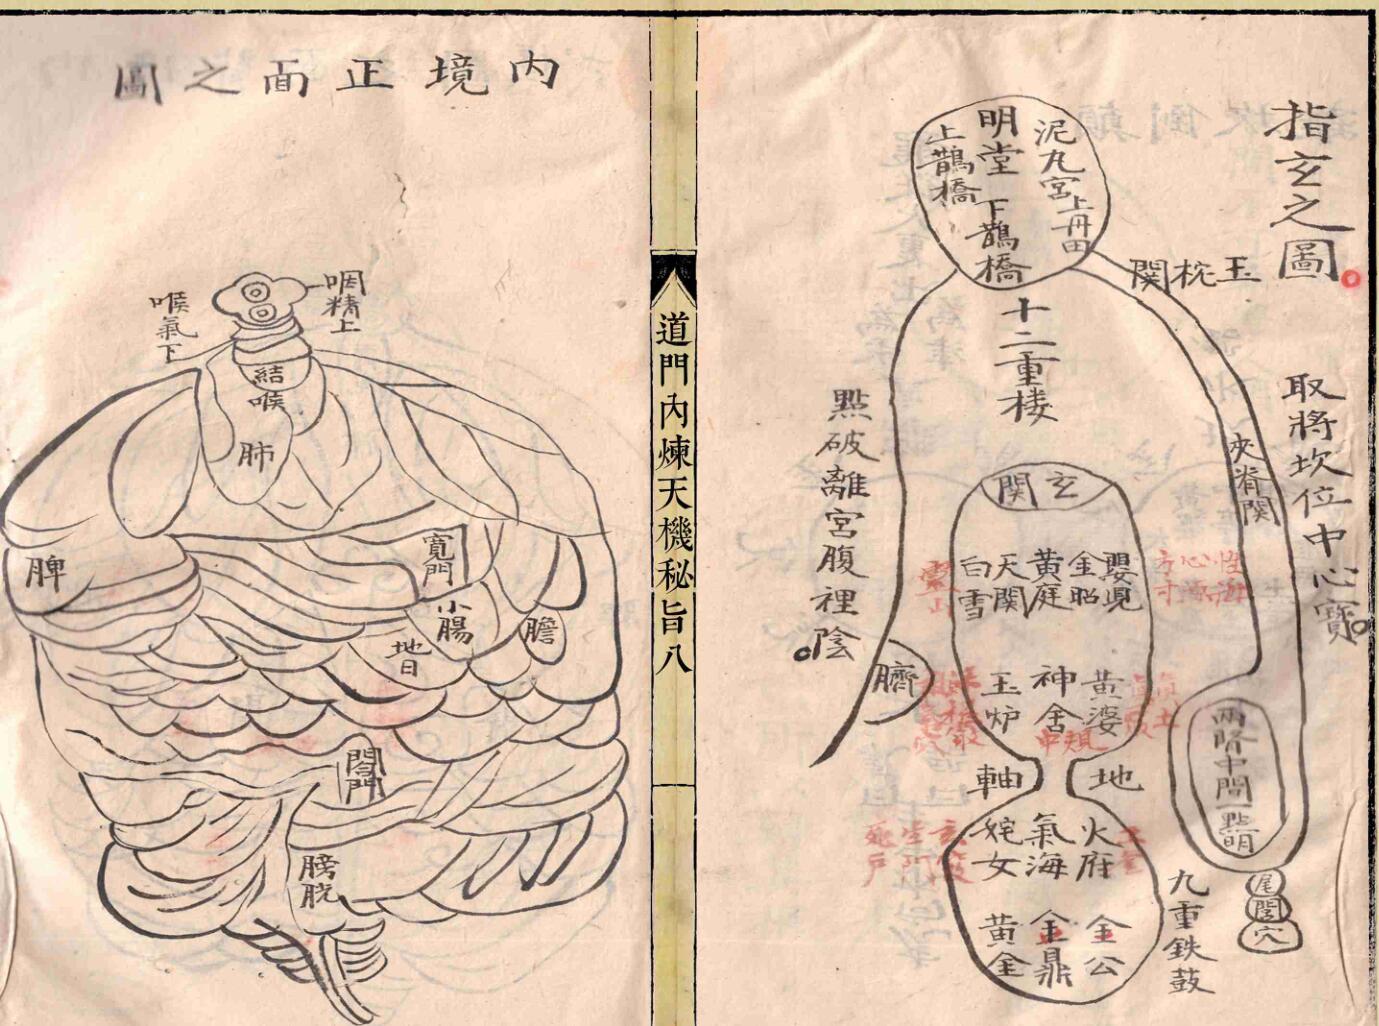 指玄之圖
取將坎位中心寶
點破離宮腹裡陰
泥丸宮
上丹田
明堂
下鵲橋
上鵲橋
玉枕関
十二重楼
夾脊関
玄関
嬰児
金昭
黃庭
天関
白雪
性海
靈山
黄婆
神舍
玉炉
臍
地軸
火府
氣海
姹女
金公
金鼎
黃金
兩腎中間一點明
尾閭穴
九重鉄鼓
道門內煉天機秘旨八
內境正面之圖
咽精上
喉氣下
結喉
肺
脾
寬門
小腸
膽
闊門
膀胱